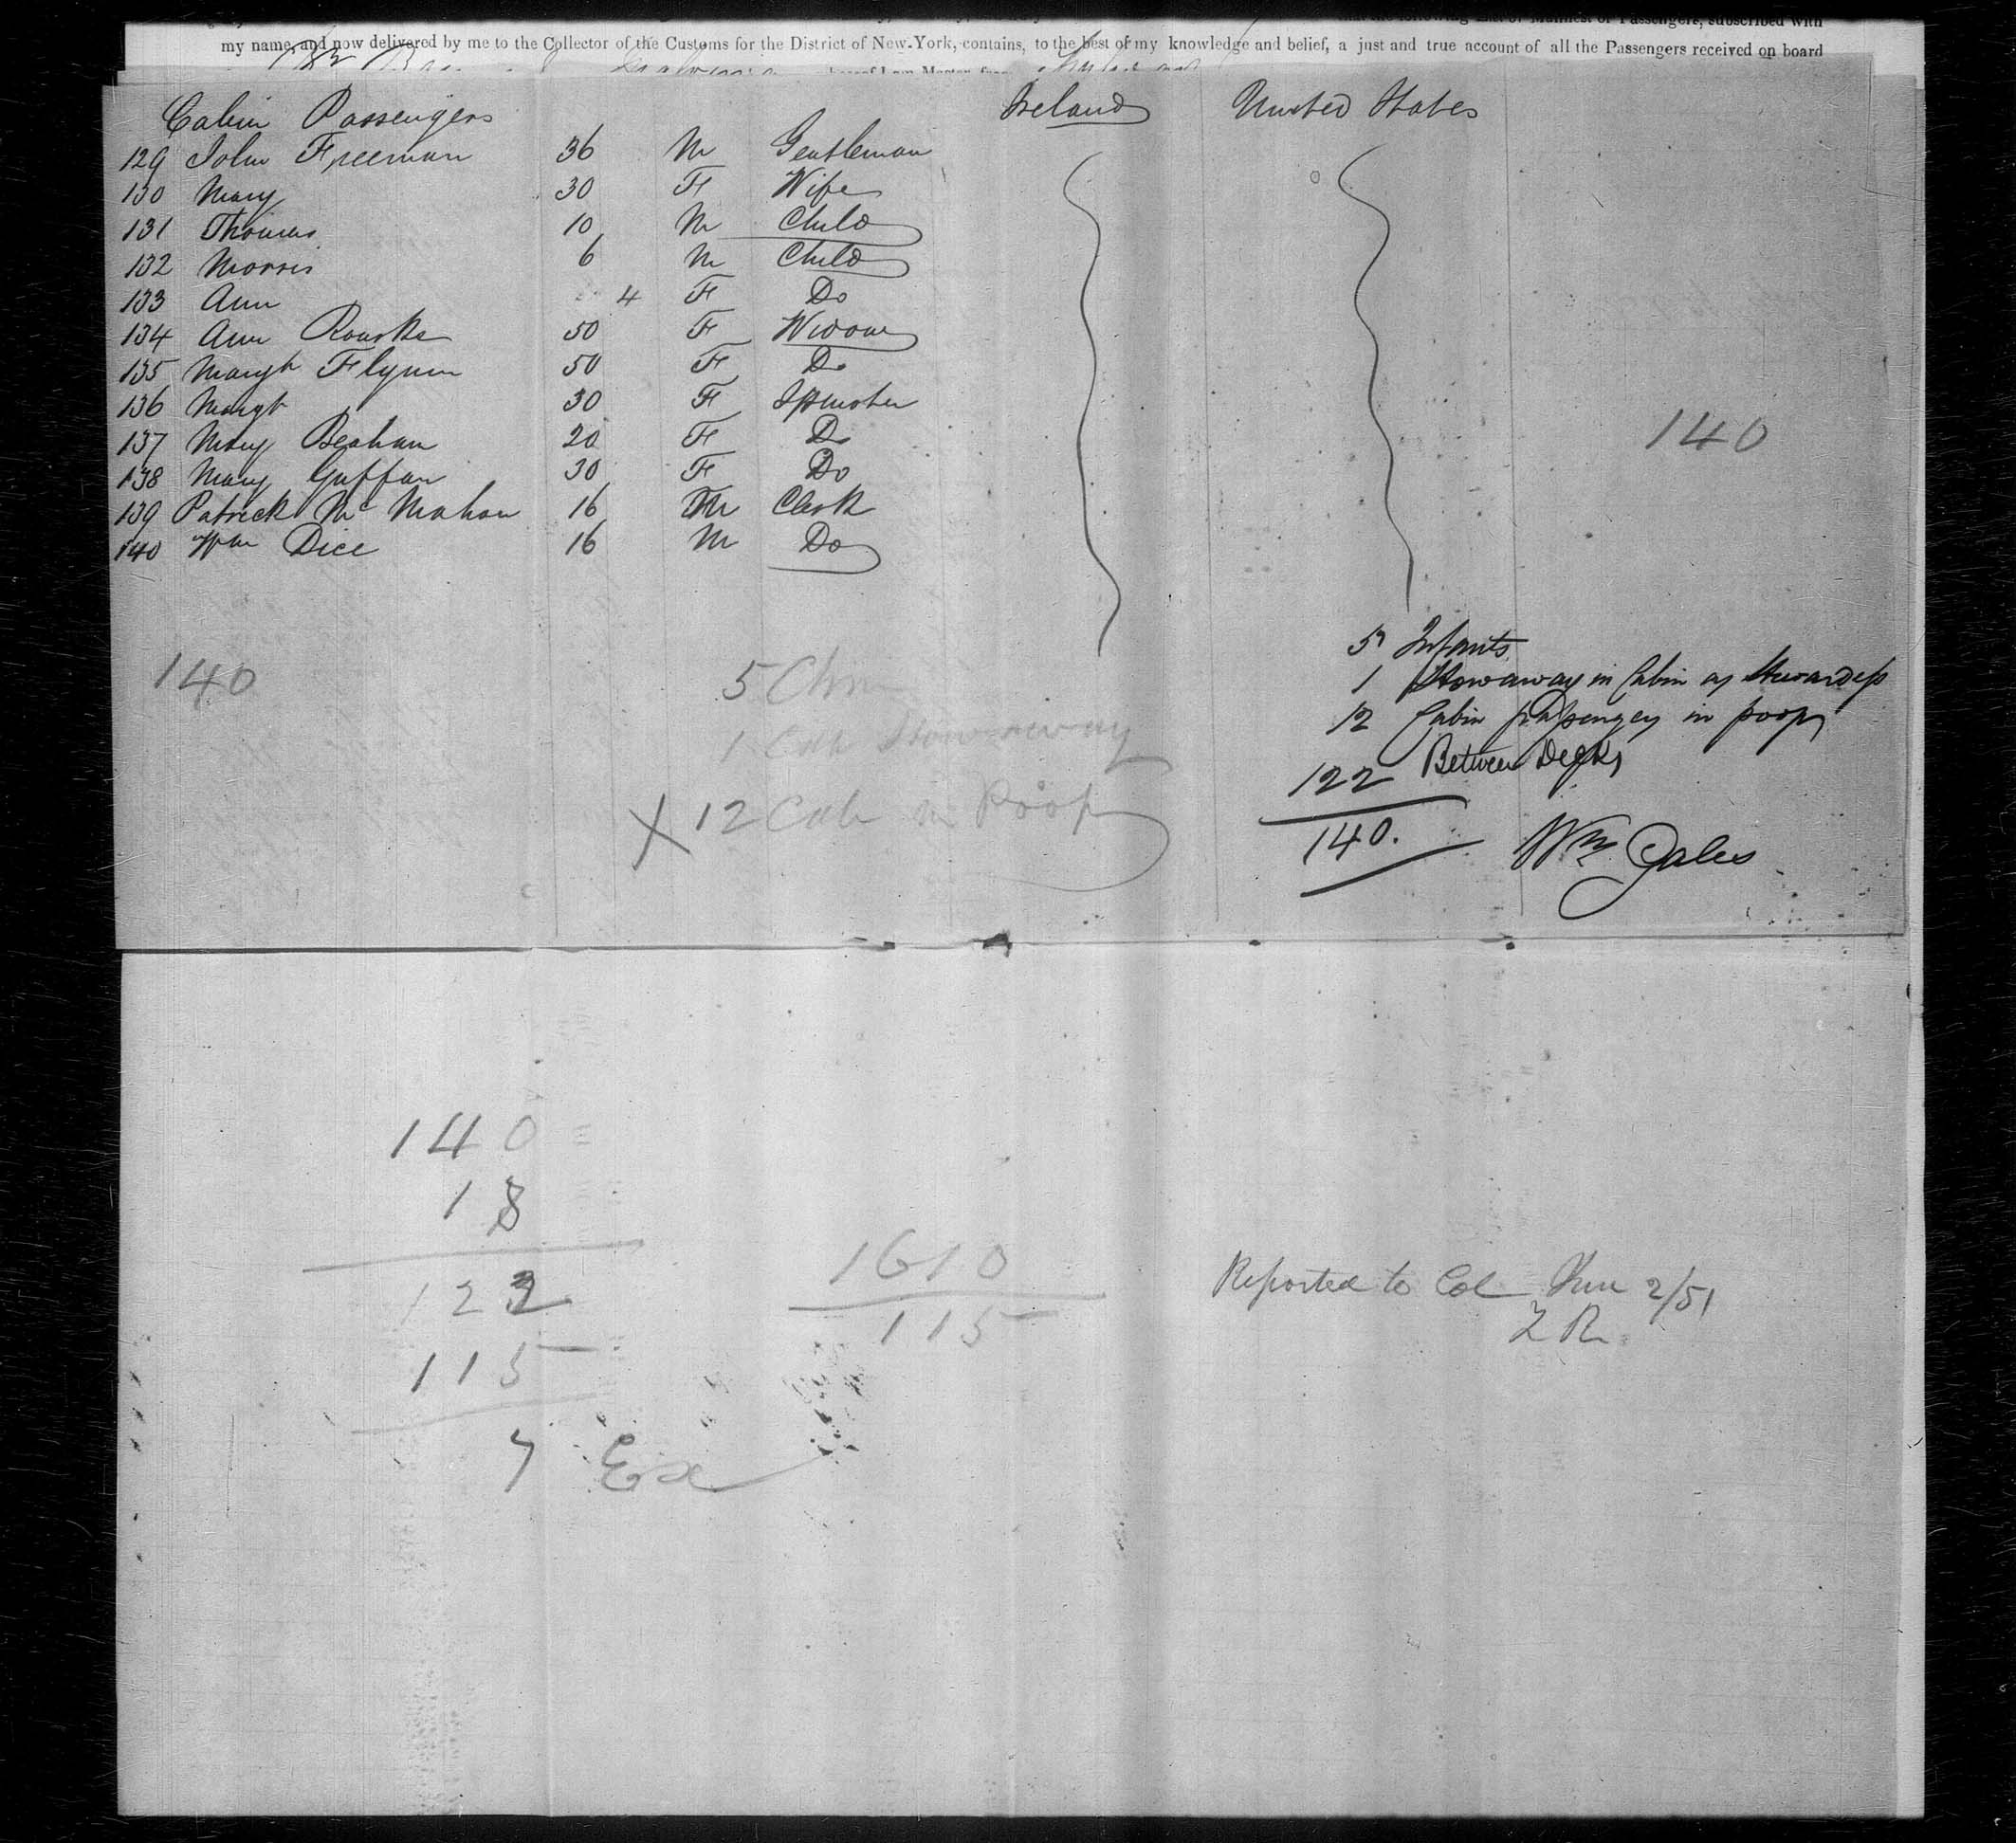 my name, and now delivered by me to the Collector of the Customs for the District of New-York, contains, to the best of my knowledge and belief, a just and true account of all the Passengers received on board
Cabin Passengers Ireland United States
129 John Freeman 36 M Gentleman
130 Mary 30 F Wife
131 Thomas 10 M Child
132 Morris 6 M Child
133 Ann 4 F Do
134 Ann Rourke 50 F Widow
135 Margt Flynn 50 F Do
136 Margt 30 F Spinster
137 Mary Beahan 20 F Do
138 Mary Guffan 30 F Do
139 Patrick Mc Mahon 16 M Clerk
140 Wm Dice 16 M Do
140
140
5 Infants
1 Stowaway in Cabin as Stewardess
12 Cabin passengers in poop
122 Between Decks
140.
Wm Gales
5 Chn
1 Cab Stowaway
X 12 Cab in Poop
140
18
122
115
7 Ex
1610
115
Reported to Col Jun 2/51